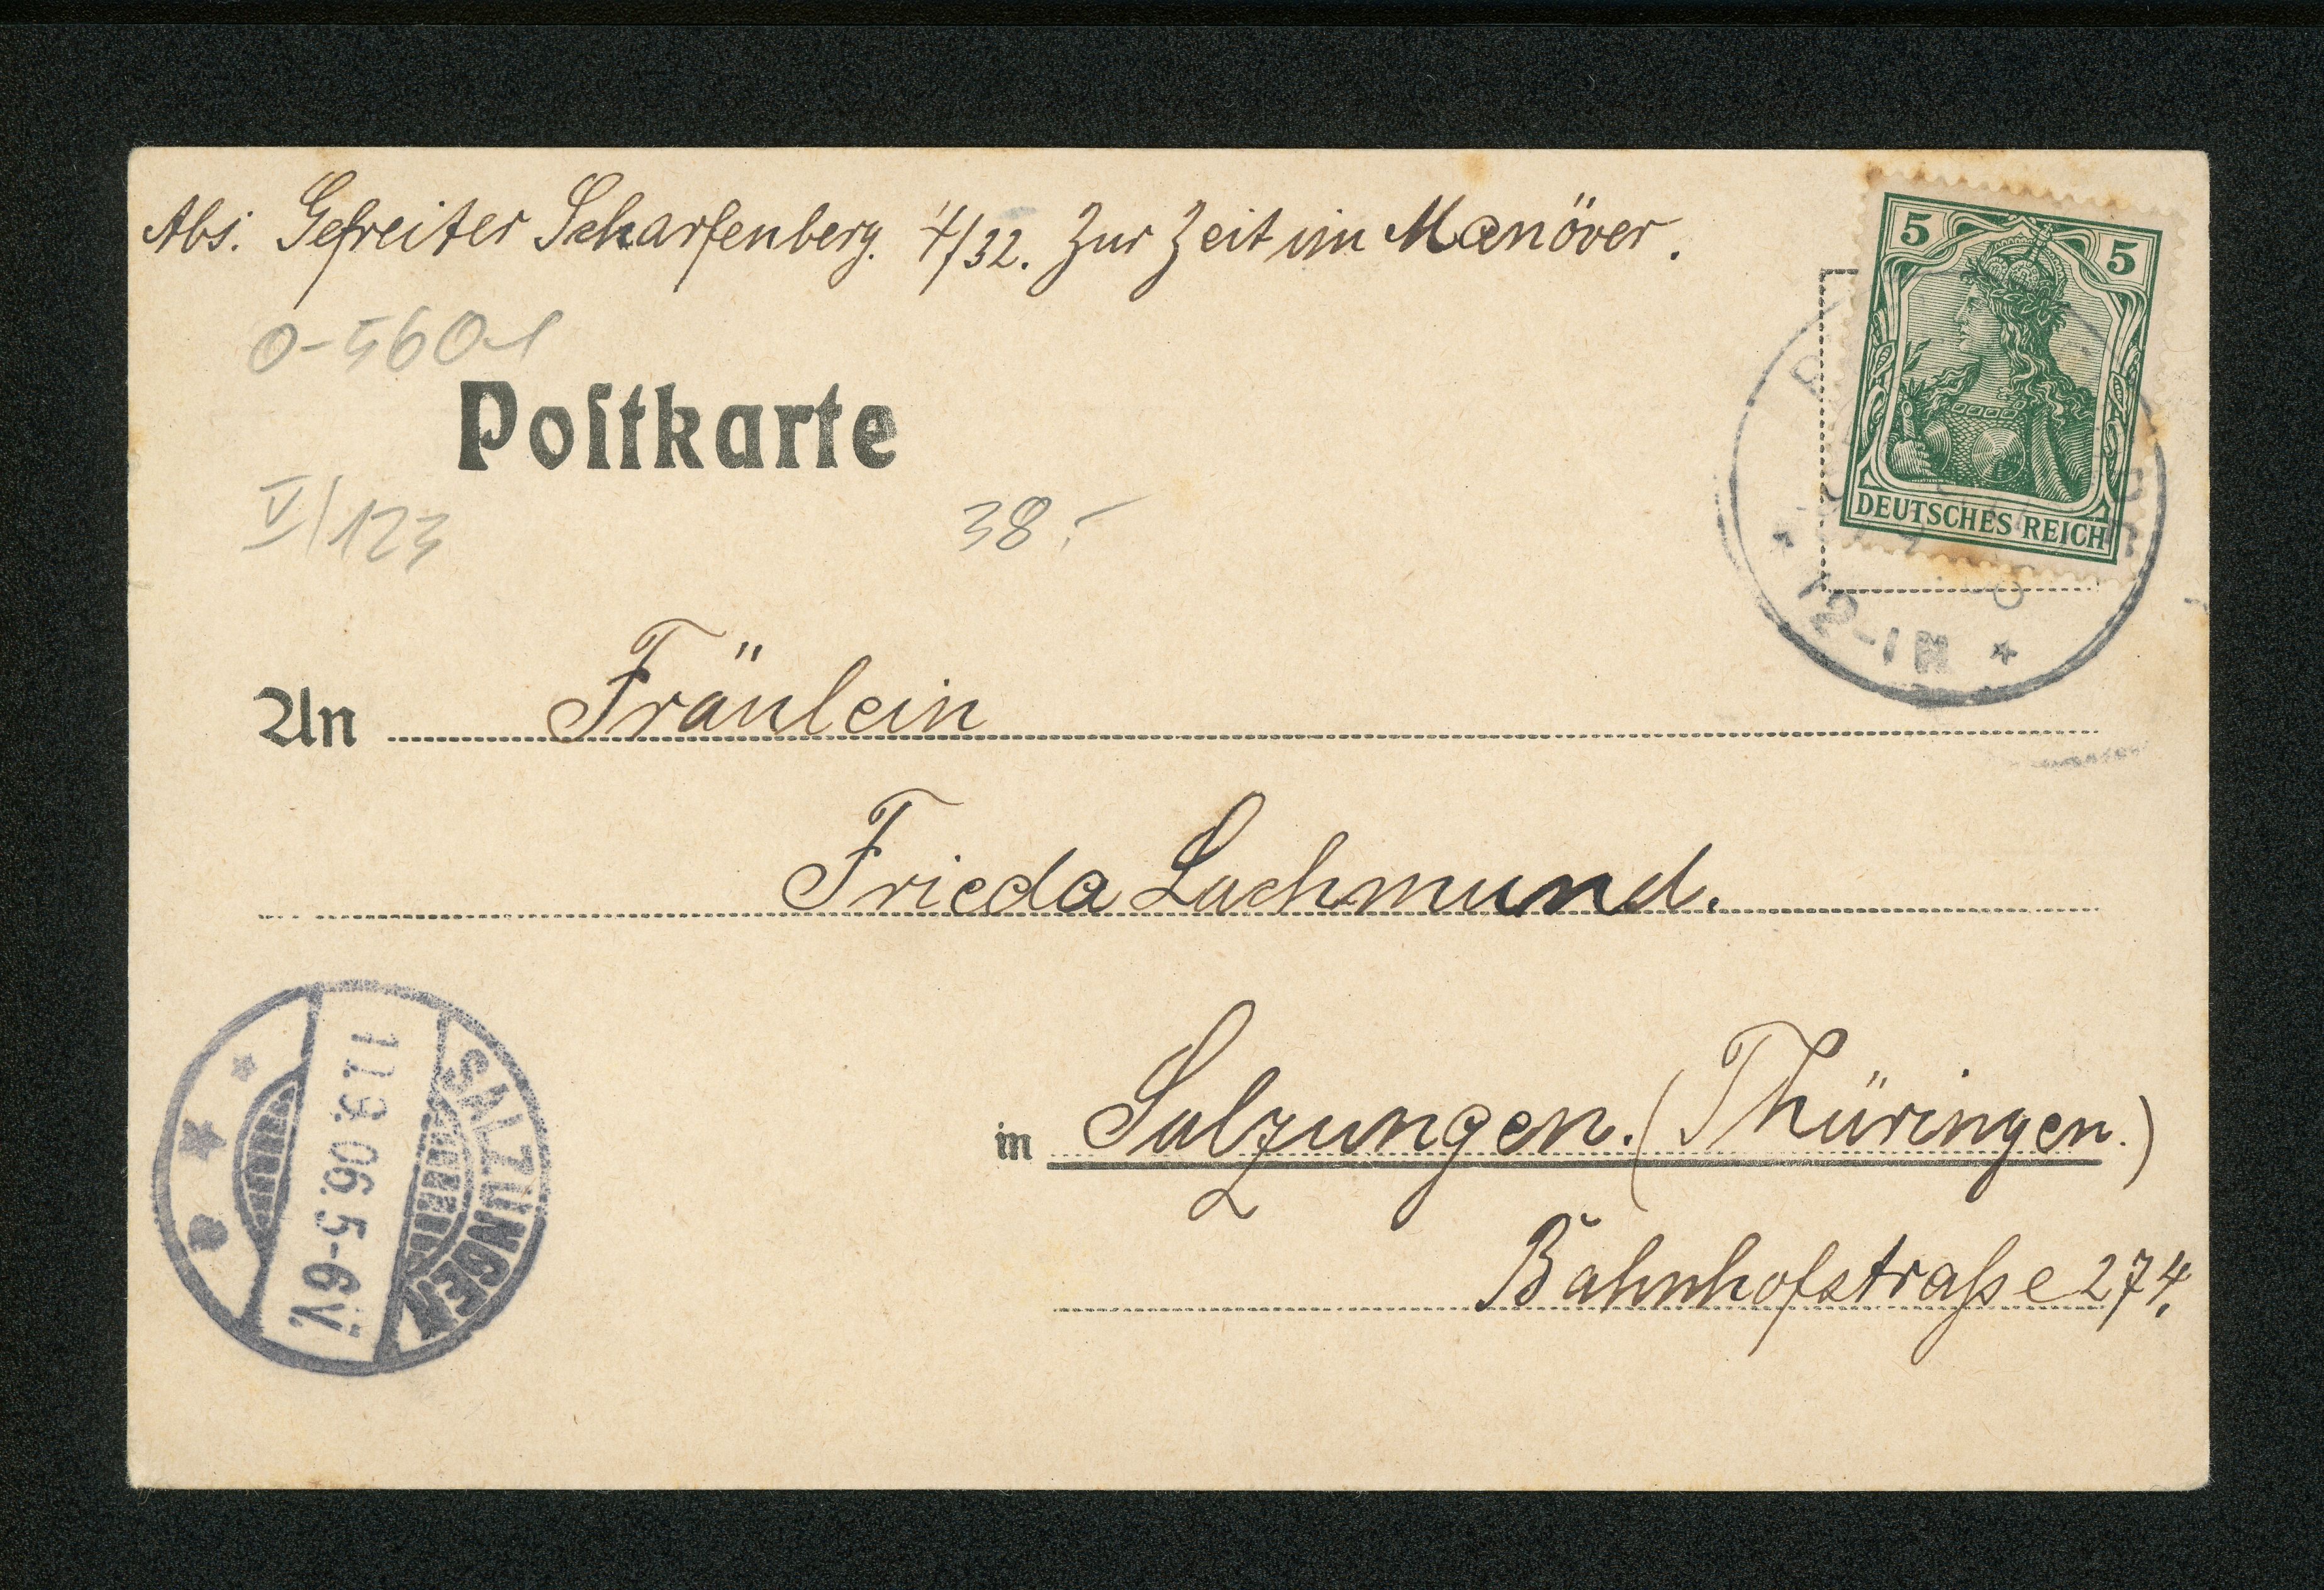 Abs. Gefreiter Scharfenberg. 4/32. Zur Zeit im Manöver.
5 5
DEUTSCHES REICH
0-5601
Postkarte
V/123
38,-
12-1 N
An Fräulein
Frieda Lachmund.
in Salzungen. (Thüringen.)
Bahnhofstraße 274.
SALZUNGEN
11.9.06. 5-6V.